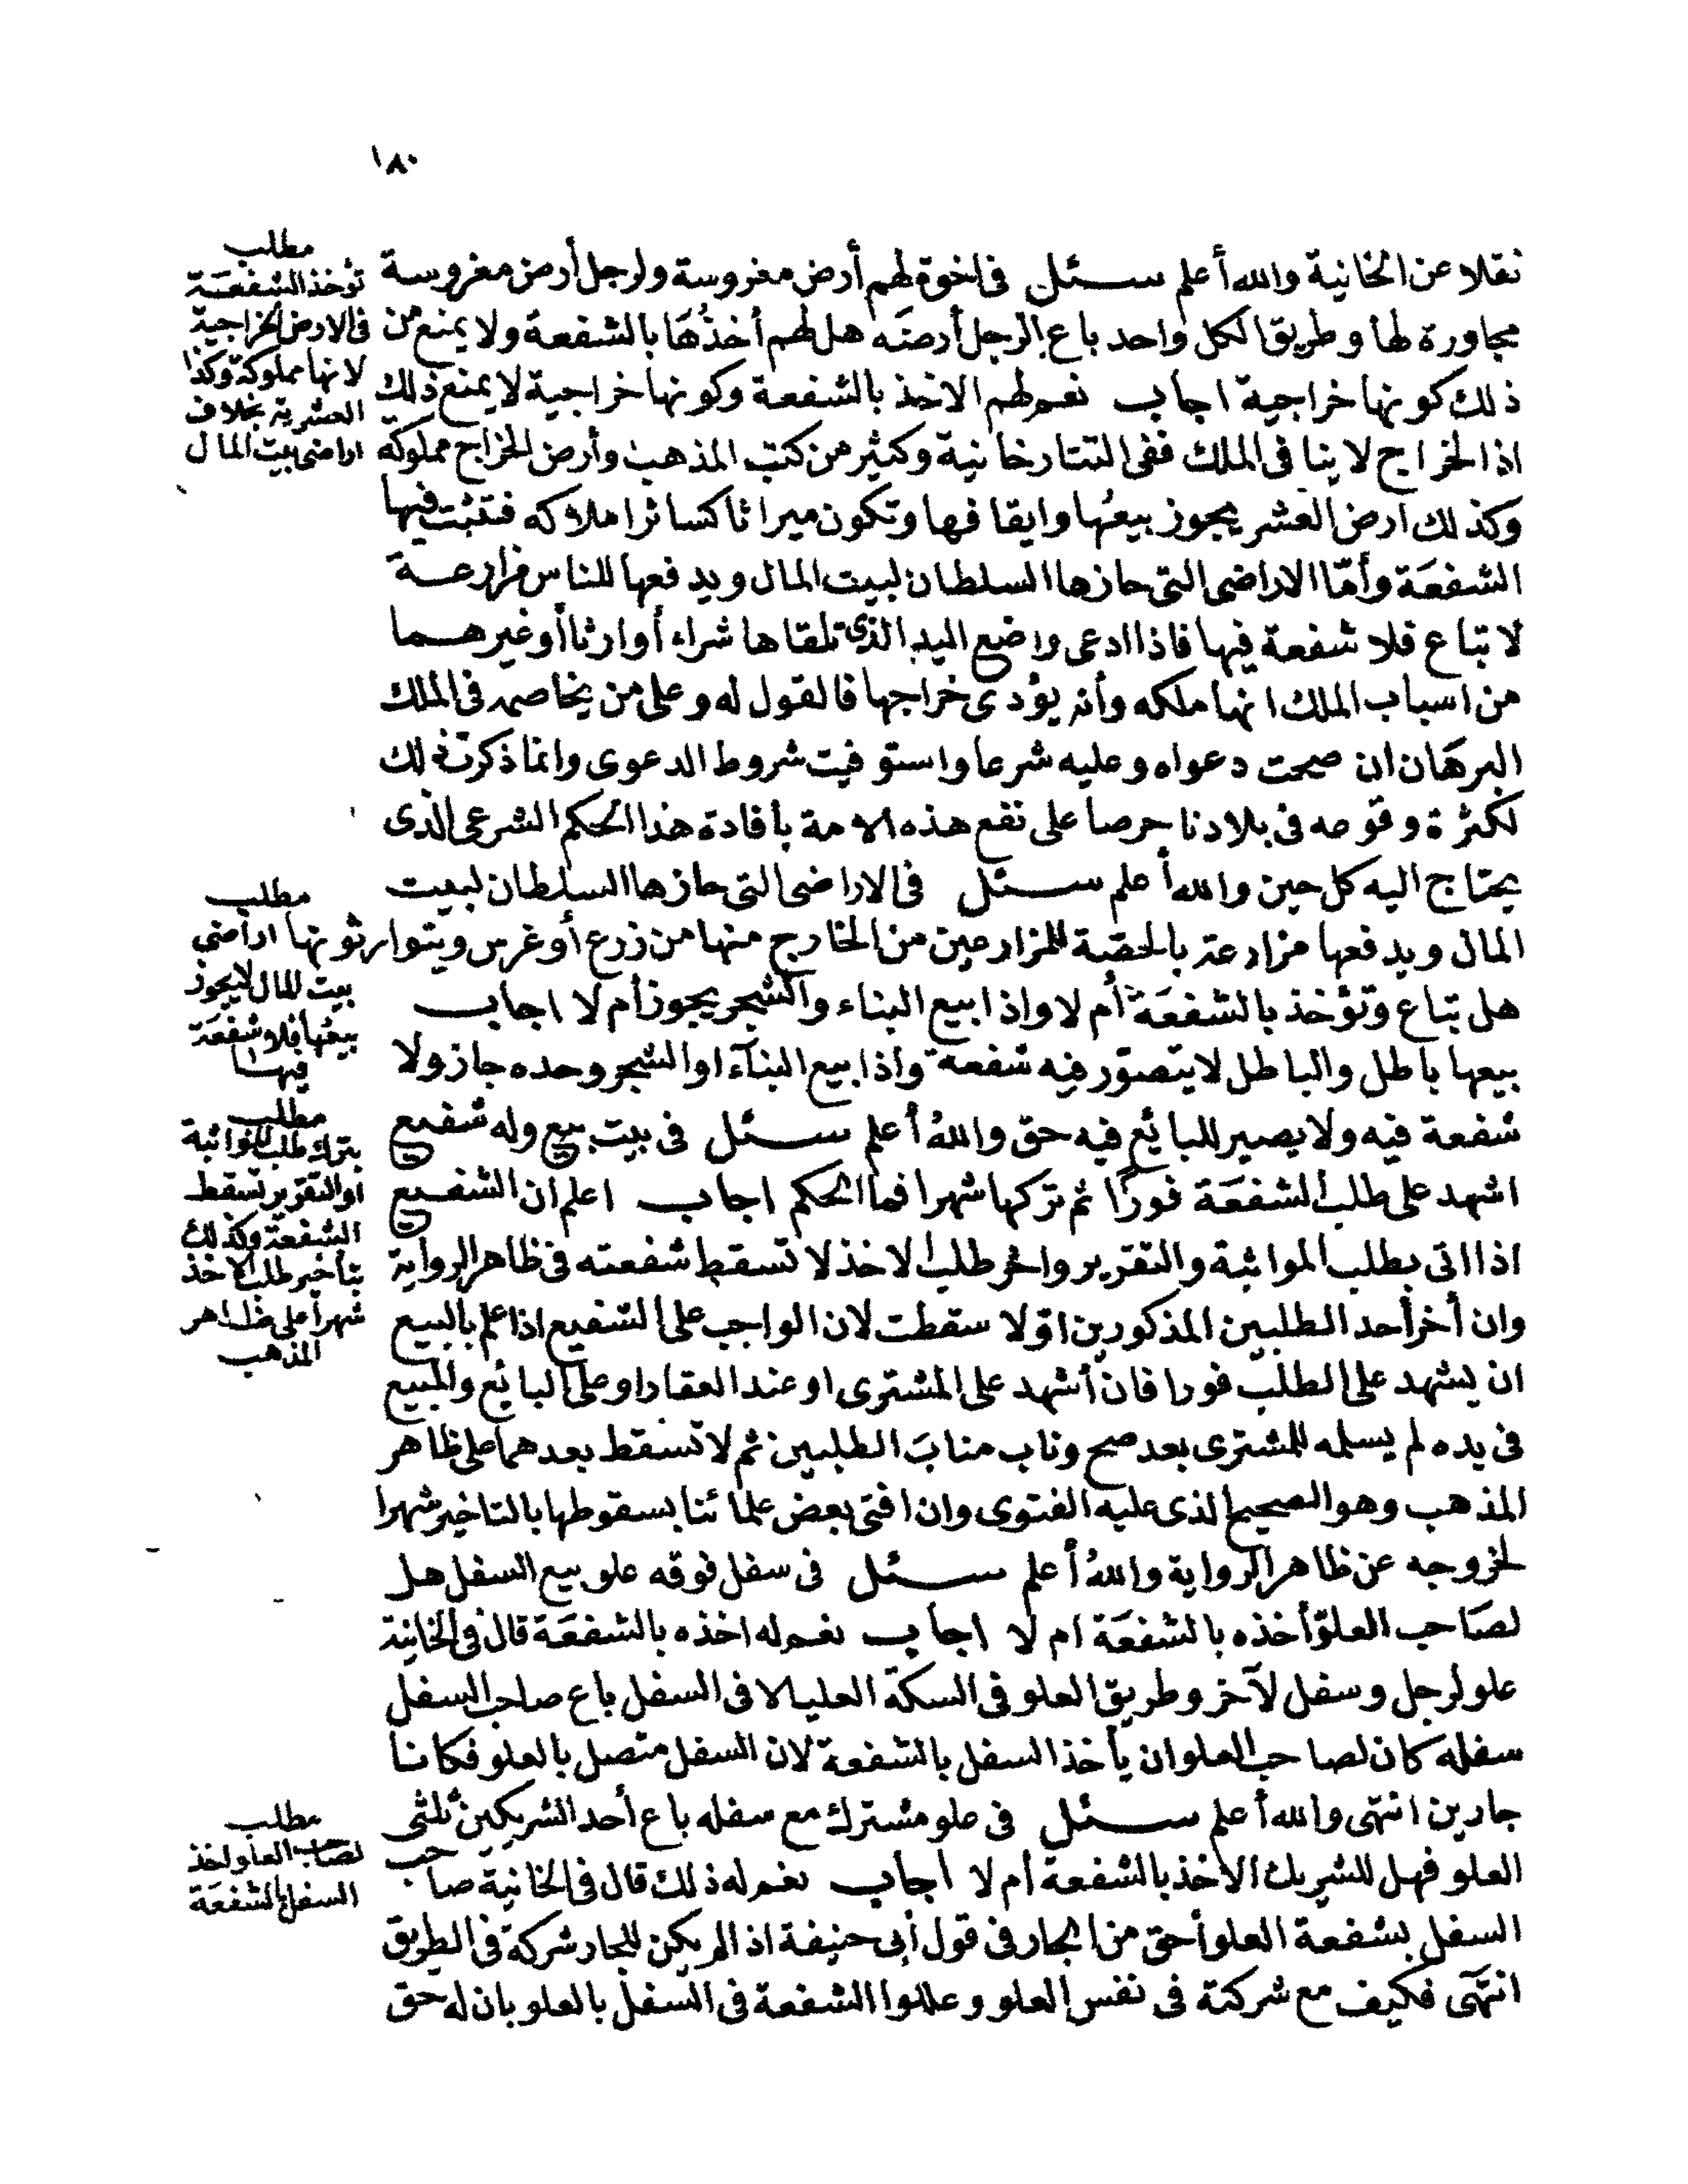 ١٨٠
نقلا عن الخانية والله أعلم سئل فى اخوة لهم أرض مغروسة ولرجل أرض مغروسة
مجاورة لها وطريق الكل واحد باع الرجل أرضه هل لهم أخذها بالشفعة ولا يمنع من
ذلك كونها خراجية اجاب نعم لهم الاخذ بالشفعة وكونها خراجية لا يمنع ذلك
اذ الخراج لا ينافى الملك ففى التتارخانية وكثير من كتب المذهب وأرض الخراج مملوكة
وكذلك ارض العشر يجوز بيعها وايقافها وتكون ميراثا كسائر املاكه فتثبت فيها
الشفعة وأمّا الاراضى التى حازها السلطان لبيت المال ويدفعها للناس مزارعة
لا تباع فلا شفعة فيها فاذا ادعى واضع اليد الذى تلقاها شراء أو ارثا أو غيرهما
من اسباب الملك انها ملكه وأنه يؤدى خراجها فالقول له وعلى من يخاصمه فى الملك
البرهان ان صحت دعواه وعليه شرعا واستوفيت شروط الدعوى وانما ذكرت ذلك
لكثرة وقوعه فى بلادنا حرصا على نفع هذه الامة بأفادة هذا الحكم الشرعى الذى
يحتاج اليه كل حين والله أعلم سئل فى الاراضى التى حازها السلطان لبيت
المال ويدفعها مزارعة بالحصة للمزارعين من الخارج منها من زرع أو غرس ويتوارثونها
هل تباع وتؤخذ بالشفعة أم لا واذا بيع البناء والشجر يجوز أم لا اجاب
بيعها باطل والباطل لا يتصوّر فيه شفعة واذا بيع البنآء او الشجر وحده جاز ولا
شفعة فيه ولا يصير للبائع فيه حق واللهُ أعلم سئل فى بيت بيع وله شفيع
اشهد على طلب الشفعة فورًا ثم تركها شهرا فما الحكم اجاب اعلم ان الشفيع
اذا اتى بطلب المواثبة والتقرير واخر طلب الاخذ لا تسقط شفعته فى ظاهر الرواية
وان أخر أحد الطلبين المذكورين اوّلا سقطت لان الواجب على الشفيع اذا علم بالبيع
ان يشهد على الطلب فورا فان أشهد على المشترى او عند العقار او على البائع والمبيع
فى يده لم يسلمه للمشترى بعد صح وناب منابَ الطلبين ثم لا تسقط بعدهما على ظاهر
المذهب وهو الصحيح الذى عليه الفتوى وان افتى بعض علمائنا بسقوطها بالتاخير شهرا
لخروجه عن ظاهر الرواية واللهُ أعلم سئل فى سفل فوقه علو بيع السفل هل
لصاحب العلوّ أخذه بالشفعة ام لا اجاب نعم له اخذه بالشفعة قال فى الخانية
علو لرجل وسفل لآخر وطريق العلو فى السكة العليا لا فى السفل باع صاحب السفل
سفله كان لصاحب العلو ان يأخذ السفل بالشفعة لان السفل متصل بالعلو فكانا
جارين انتهى والله أعلم سئل فى علو مشترك مع سفله باع أحد الشريكين ثلثى
العلو فهل للشريك الاخذ بالشفعة أم لا أجاب نعم له ذلك قال فى الخانية صاحب
السفل بشفعة العلو أحق من الجار فى قول أبى حنيفة اذا لم يكن للجار شركة فى الطريق
انتهى فكيف مع شركته فى نفس العلو وعللوا الشفعة فى السفل بالعلو بان له حق
مطلب
تؤخذ الشفعة
فى الارض الخراجية
لانها مملوكة وكذا
العشرية بخلاف
اراضى بيت المال
مطلب
اراضى
بيت المال لا يجوز
بيعها فلا شفعة
فيها
مطلب
بترك طلب المواثبة
او التقرير تسقط
الشفعة وكذلك
بتأخير طلب الاخذ
شهرا على ظاهر
المذهب
مطلب
لصاحب العلو اخذ
السفل بالشفعة